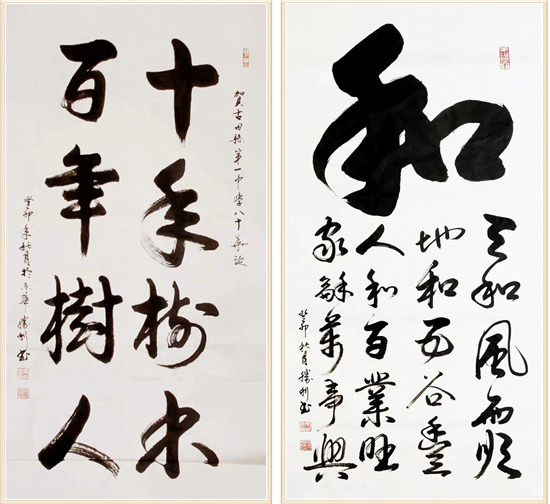 賀古田縣第一中學八十華誕
十年樹木
百年樹人
癸卯年秋月於京華 勝利書
和
天和風雨順
地和五谷豐
人和百業旺
家龢萬事興
癸卯秋月勝利書